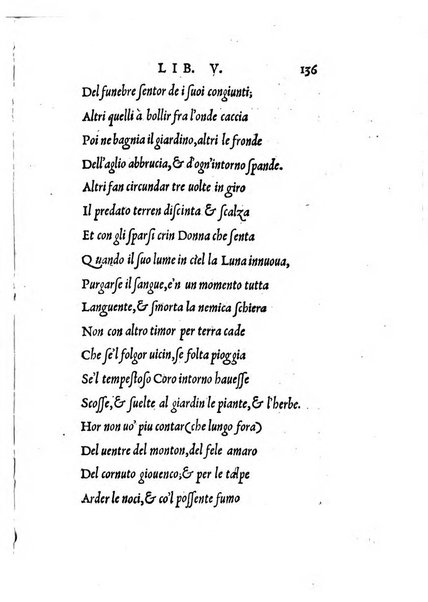 LIB. V. 136
Del funebre sentor de i suoi congiunti;
Altri quelli à bollir fra l'onde caccia
Poi ne bagnia il giardino, altri le fronde
Dell'aglio abbrucia, & d'ogn'intorno spande.
Altri fan circundar tre uolte in giro
Il predato terren discinta & scalza
Et con gli sparsi crin Donna che senta
Quando il suo lume in ciel la Luna innuoua,
Purgarse il sangue, e'n un momento tutta
Languente, & smorta la nemica schiera
Non con altro timor per terra cade
Che se'l folgor uicin, se folta pioggia
Se'l tempestoso Coro intorno hauesse
Scosse, & suelte al giardin le piante, & l'herbe.
Hor non uo' piu contar (che lungo fora)
Del uentre del monton, del fele amaro
Del cornuto giouenco; & per le talpe
Arder le noci, & co'l possente fumo